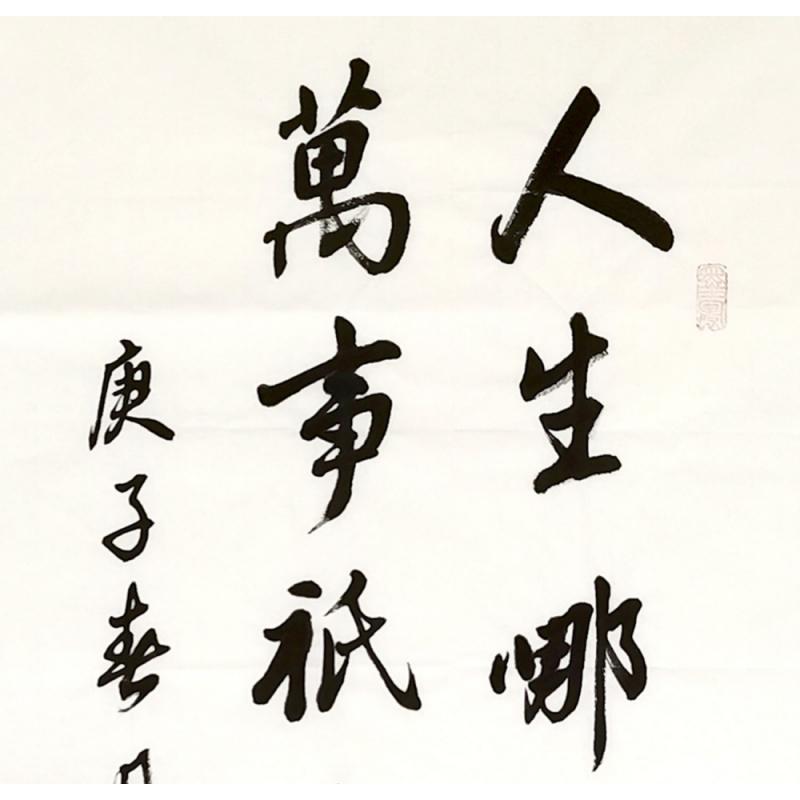 人生哪
萬事祇
庚子春月